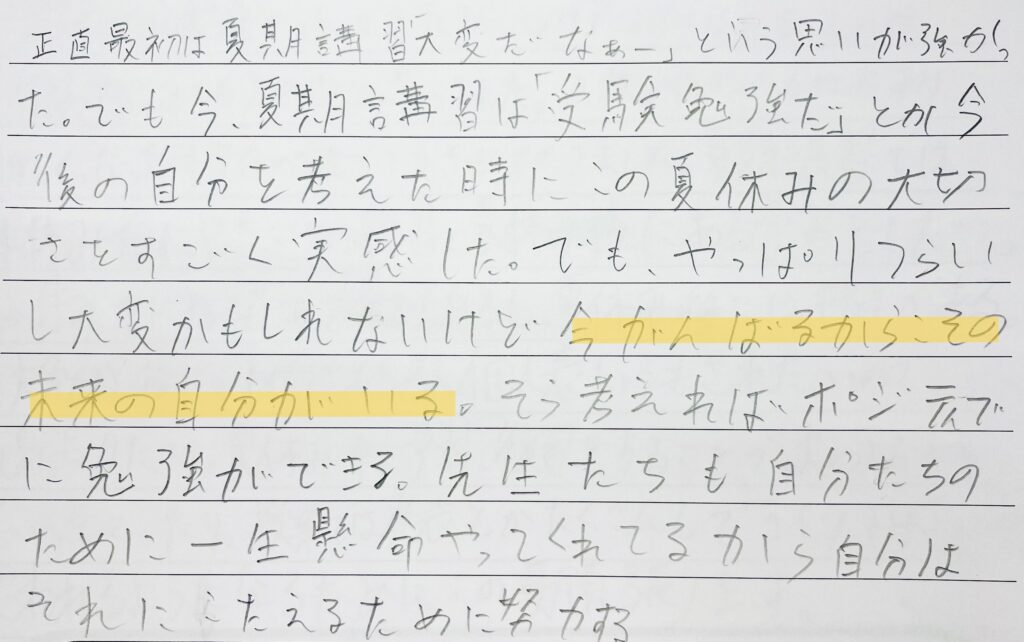 正直最初は夏期講習「大変だなぁー」という思いが強かっ
た。でも今、夏期講習は「受験勉強だ」とか今
後の自分を考えた時にこの夏休みの大切
さをすごく実感した。でも、やっぱりつらい
し大変かもしれないけど今がんばるからこその
未来の自分がいる。そう考えればポジティブ
に勉強ができる。先生たちも自分たちの
ために一生懸命やってくれてるから自分は
それにこたえるために努力する